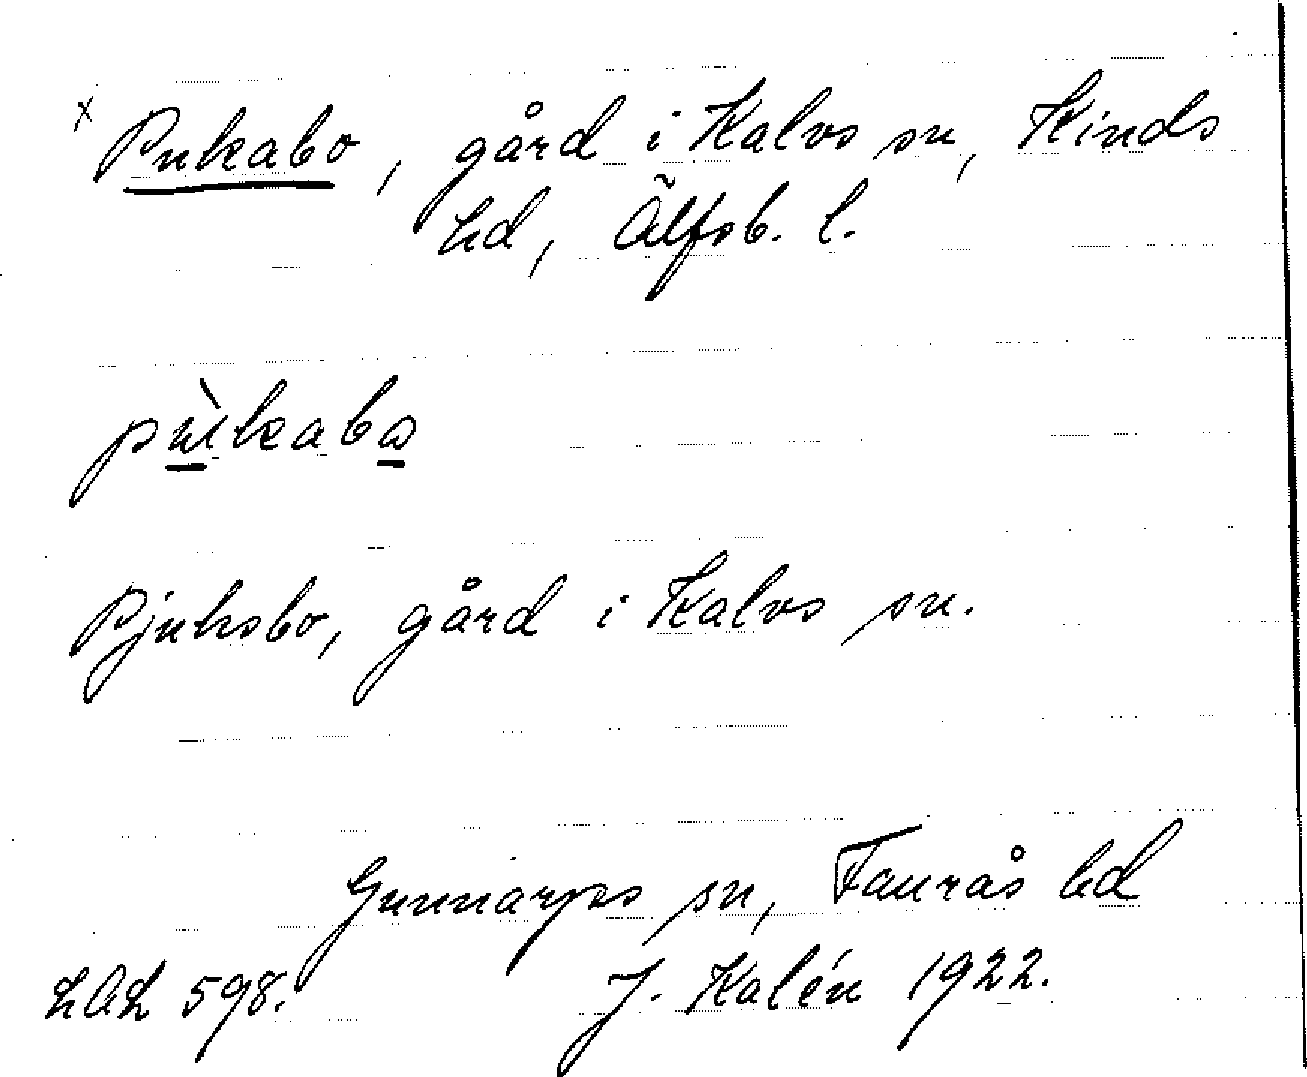 x Pukabo, gård i Kalvs sn, Kinds
hd, Älfsb. l.
pùkabo
Pjuksbo, gård i Kalvs sn.
Gunnarps sn, Faurås hd
LAL 598. J. Kalén 1922.